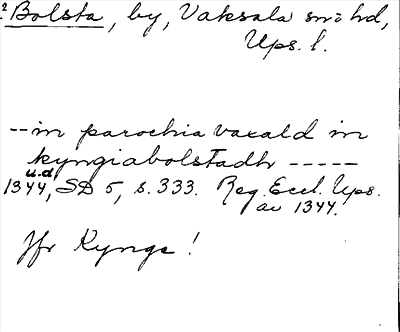 2 Bolsta, by, Vaksala sn o hd,
Ups. l.
-- in parochia vaxald in
kyngiabolstadh -----
u.d
1344, SD 5, s. 333. Reg. Eccl. Ups.
av 1344.
Jfr Kynge!